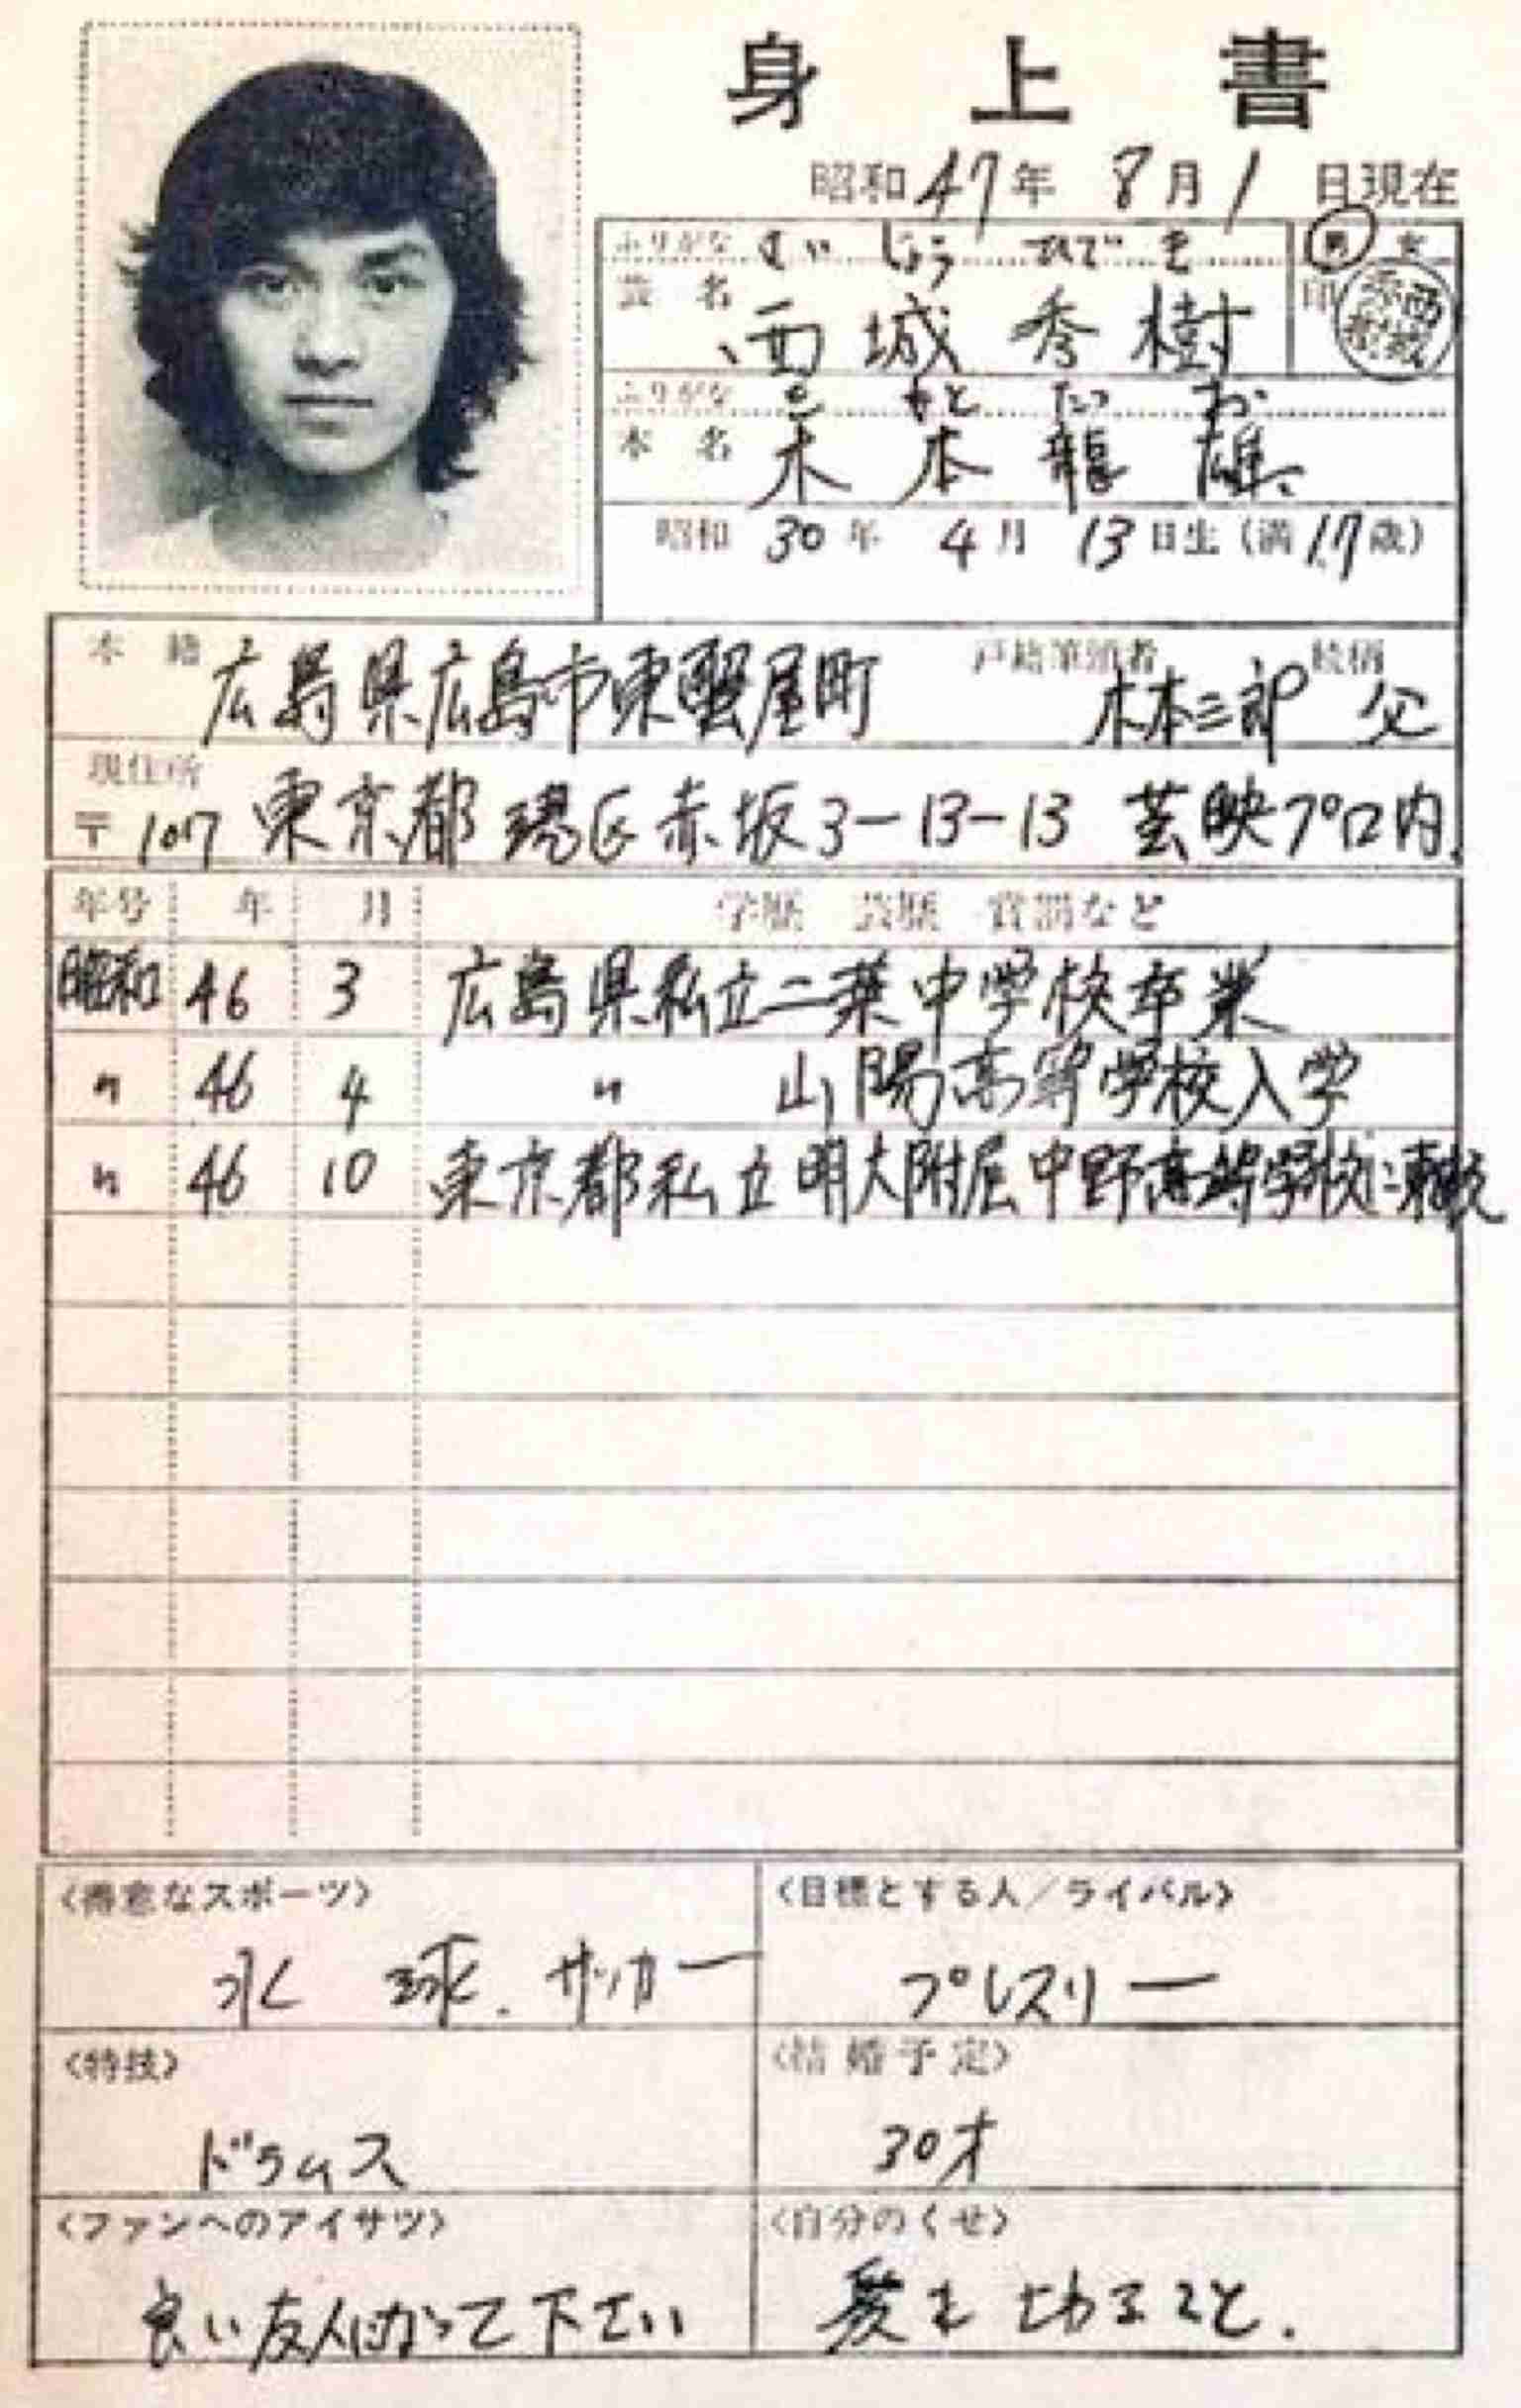 身上書
昭和47年 8月1日現在
ふりがな さいじょう ひでき
芸名 西城秀樹
男 女
印 西城秀樹
ふりがな きもと たつお
本名 木本龍雄
昭和30年4月13日生(満17歳)
本籍 広島県広島市東蟹屋町 戸籍筆頭者 木本三郎 続柄 父
現住所
〒107 東京都港区赤坂3-13-13 芸映プロ内
年号 年 月 学歴 芸歴 賞罰など
昭和 46 3 広島県私立二葉中学校卒業
〃 46 4 〃 山陽高等学校入学
〃 46 10 東京都私立明大附属中野高等学校に転校
〈得意なスポーツ〉 〈目標とする人/ライバル〉
水球.サッカー プレスリー
〈特技〉 〈結婚予定〉
ドラムス 30才
〈ファンへのアイサツ〉 〈自分のくせ〉
良い友人になって下さい 髪を切ること.